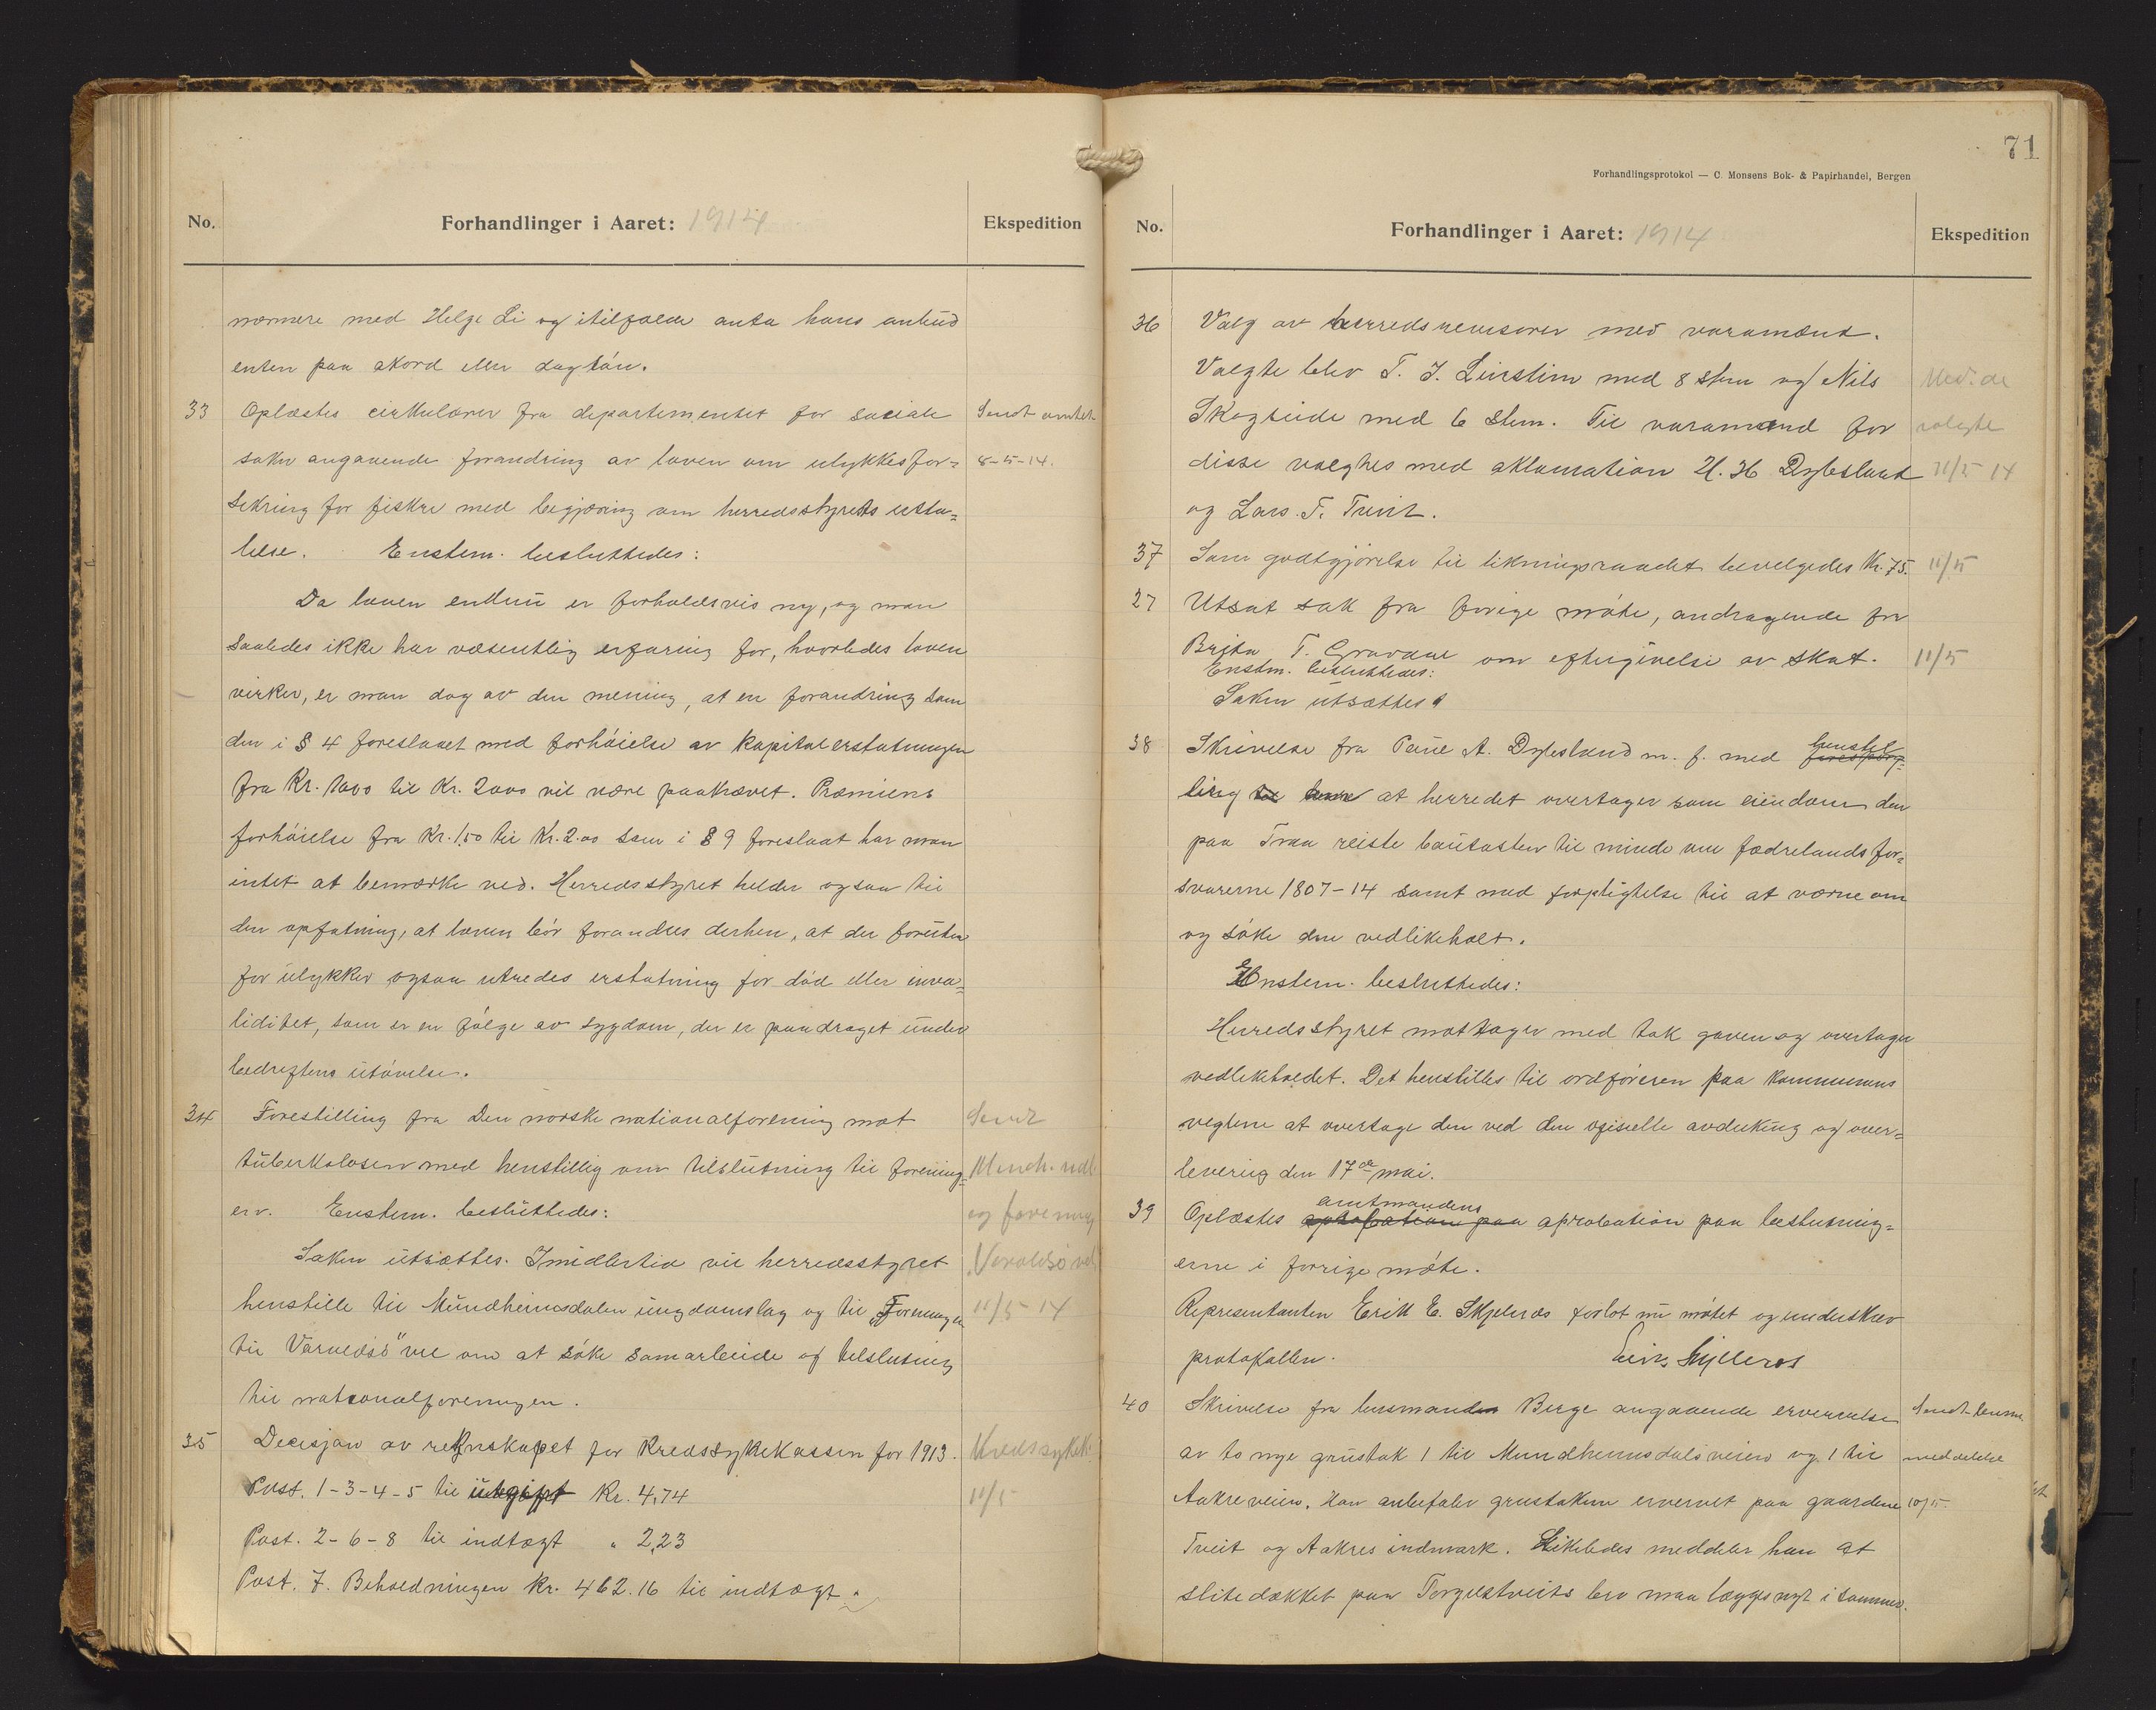 No.
Forhandlinger i Aaret: 1914
Ekspedition
nærmere med Helge Li og itilfælde anta hans anbud
enten paa akord eller dagløn.
33 Oplæstes cirkulærer fra departementet for sociale Sendt amtet
saker angaaende forandring av loven om ulykkesfor- 8-5-14.
sikring for fiskere med begjæring om herredsstyrets utta-
lelse. Enstem. besluttedes:
Da loven endnu er forholdsvis ny, og man
saaledes ikke har væsentlig erfaring for, hvorledes loven
virker, er man dog av den mening, at en forandring som
den i § 4 foreslaaet med forhøielse av kapitalerstatningen
fra Kr. 1000 til Kr. 2000 vil være paakrævet. Præmiens
forhøielse fra Kr. 1.50 til Kr. 2.00 som i § 9 foreslaat har man
intet at bemærke ved. Herredsstyret helder ogsaa til
den opfatning, at loven bør forandres derhen, at der foruten
for ulykker ogsaa utredes erstatning for død eller inva-
liditet, som er en følge av sygdom, der er paadraget under
bedriftens utøvelse.
34 Forestilling fra Den norske nationalforening mot Sendt
tuberkulosen med henstillig om tilslutning til forening- Mundh. udl.
en. Enstem. besluttedes: og forening
Saken utsættes. Imidlertid vil herredsstyret Varaldsø vel
henstille til Mundheimsdalen ungdomslag og til "Foreningen 11/5 14
til Varaldsø" vel om at søke samarbeide og tilslutning
til nationalforeningen.
35 Decisjon av regnskapet for Kredssykekassen for 1913. Kredssykek.
Post. 1-3-4-5 til utgift Kr. 4,74 11/5
Post. 2-6-8 til indtægt " 2,23
Post. 7. Beholdningen Kr. 462.16 til indtægt.
71
Forhandlingsprotokol — C. Monsens Bok- & Papirhandel, Bergen
No.
Forhandlinger i Aaret: 1914
Ekspedition
36 Valg av herredsrevisorer med varamænd.
Valgte blev T. J. Linstim med 8 stem og Nils Med. de
Skogseide med 6 stem. Til varamænd for valgte
disse valgtes med aklamation H. H. Dyesland 11/5 14
og Lars T. Tveit.
37 Som godtgjørelse til likningsraadet bevilgedes Kr. 75. 11/5
27 Utsat sak fra forige møte, andragende fra
Brita T. Gravdal om eftergivelse av skat. 11/5
Enstem. besluttedes:
Saken utsættes
38 Skrivelse fra Paul A. Dyesland m. f. med henstil
ling at herredet overtager som eiendom den
paa Traa reiste bautasten til minde om fædrelandsfor-
svarerne 1807-14 samt med forpligtelse til at værne om
og søke den vedlikeholt.
Enstem. besluttedes:
Herredsstyret mottager med tak gaven og overtager
vedlikeholdet. Det henstilles til ordføreren paa kommunens
veglene at overtage den ved den ofisielle avduking og over-
levering den 17de mai.
39 Oplæstes amtmandens aprobation paa beslutning-
erne i forrige møte.
Representanten Erik E. Skjelnæs forlot nu møtet og underskrev
protokollen. Eirik Skjelleros
40 Skrivelse fra lensmanden Berge angaaende erververlse Sendt lensm.
av to nye grustak 1 til Mundheimsdalsveien og 1 til meddelelse
Aakreveien. Han anbefaler grustakene ervervet paa gaardene 10/5.
Tveit og Aakres indmark. Likeledes meddeler han at
slitedækket paa Torgilstveits bro maa lægges nyt i sommer.